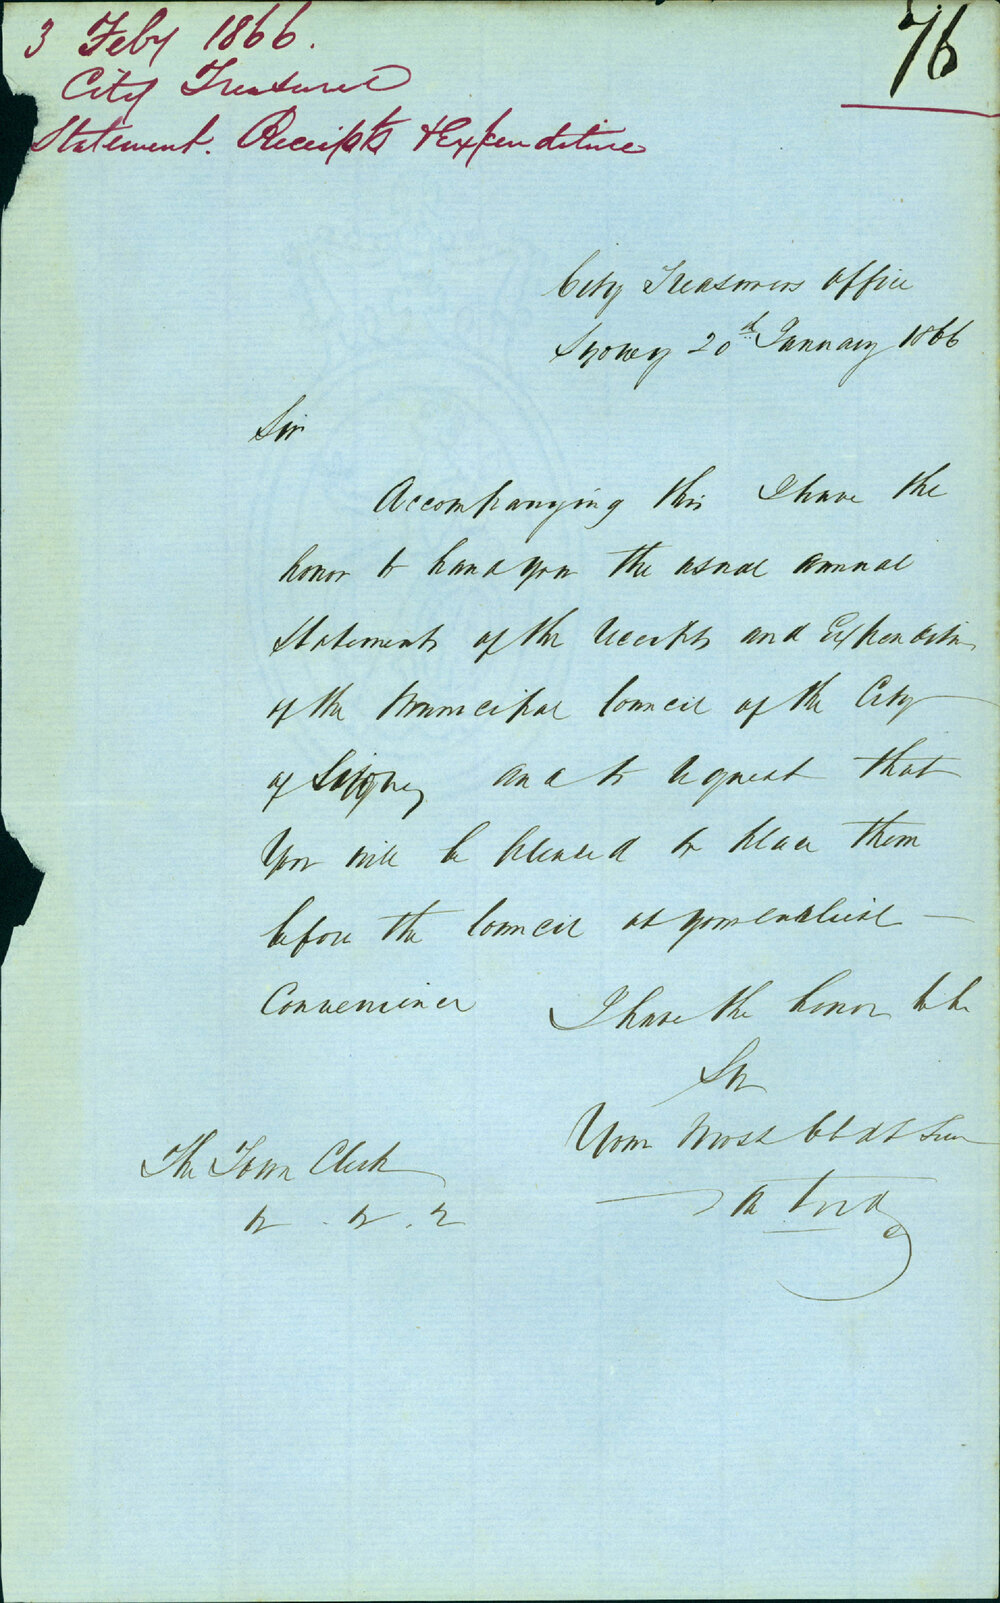 3 Feby 1866.
76
City Treasurer
Statement. Receipts & Expenditure
City Treasurers Office
Sydney 20th January 1866
Sir
Accompanying this I have the
honor to hand you the usual annual
Statements of the receipts and Expenditure
of the Municipal Council of the City
of Sydney and to request that
You will be pleased to place them
before the Council at your earliest
Convenience I have the honor to be
Sir
Your Most Obdt Serv
The Town Clerk